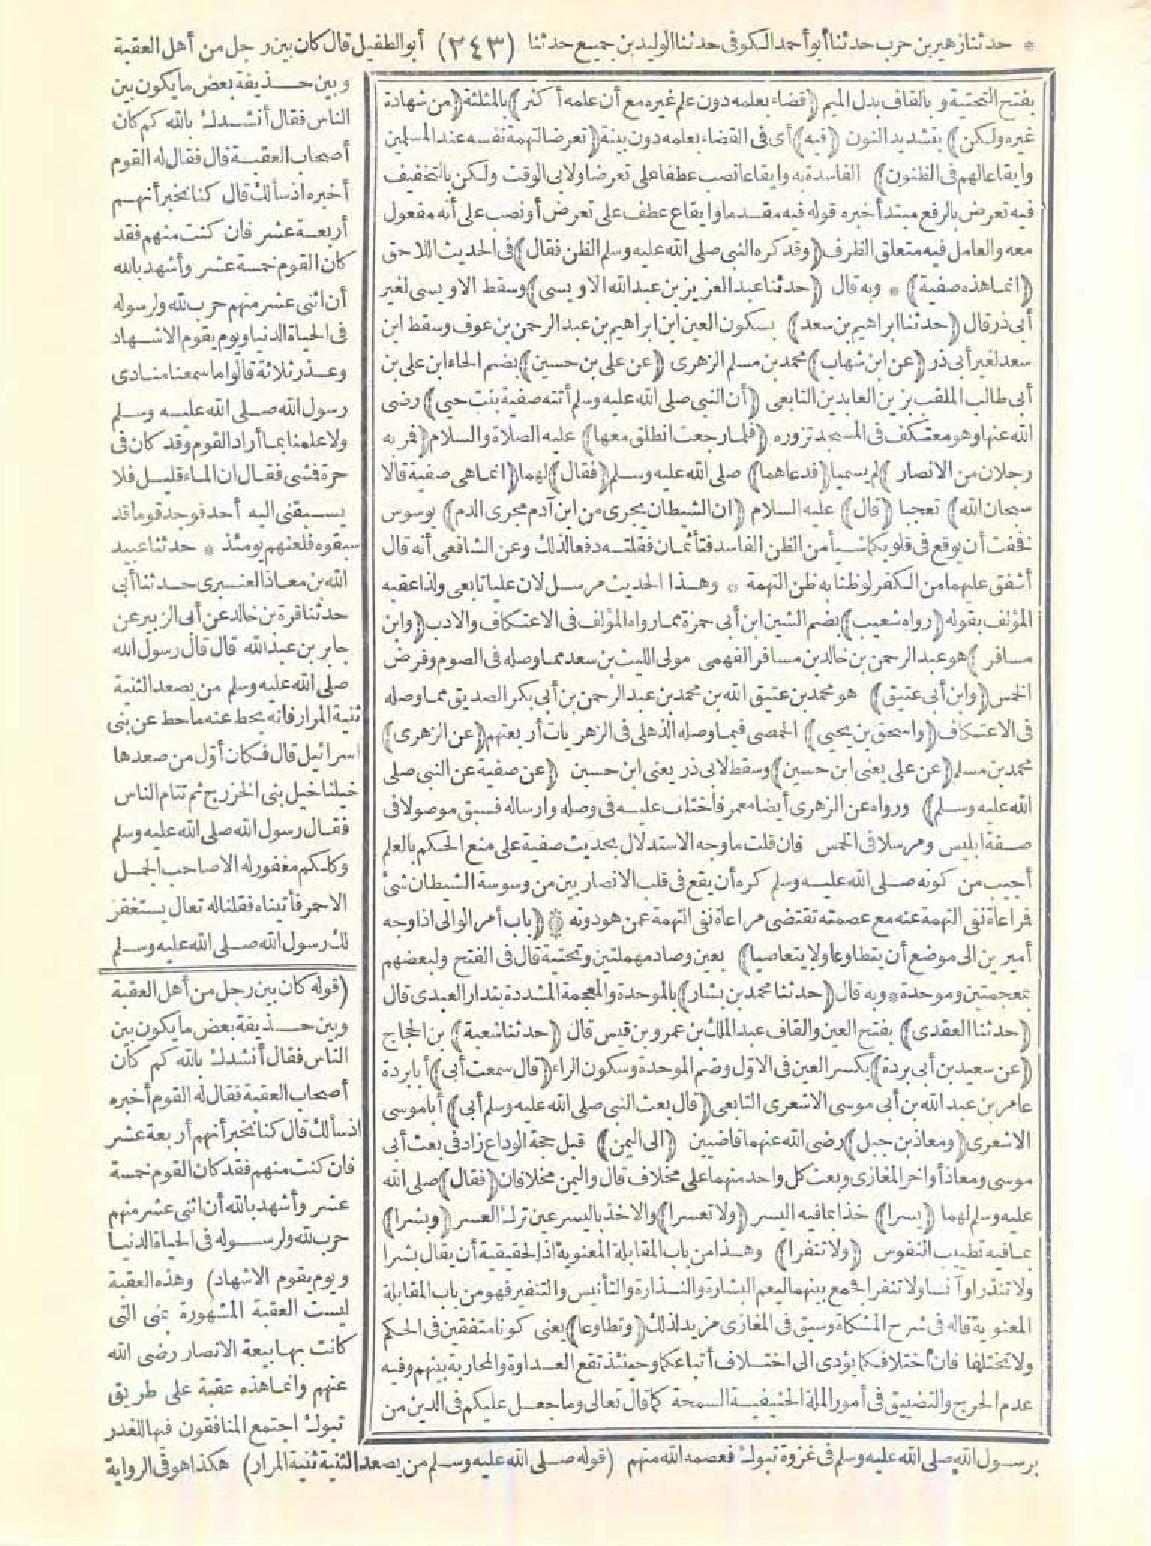 * حدثنا زهير بن حرب حدثنا أبو أحمد الكوفى حدثنا الوليد بن جميع حدثنا (٢٤٣) أبو الطفيل قال كان بين رجل من أهل العقبة
بفتح التحتية وبالقاف بدل الميم ((قضاء بعلمه دون علم غيره مع أن علمه أكثر)) بالمثلثة ((من شهادة
غيره ولكن)) بتشديد النون ((فيه)) أى فى القضاء بعلمه دون بينة ((تعرضا لتهمة نفسه عند المسلمين
وايقاعا لهم فى الظنون)) الفاسدة به وايقاعا نصب عطفا على تعرضا ولابى الوقت ولكن بالتخفيف
فيه تعرض بالرفع مبتدأ خبره قوله فيه مقدما وايقاع عطف على تعرض أو نصب على أنه مفعول
معه والعامل فيه متعلق الظرف ((وقد كره النبى صلى الله عليه وسلم الظن فقال)) فى الحديث اللاحق
((انما هذه صفية)) * وبه قال ((حدثنا عبد العزيز بن عبد الله الاويسى)) وسقط الاويسى لغير
أبى ذر قال ((حدثنا ابراهيم بن سعد)) بسكون العين ابن ابراهيم بن عبد الرحمن بن عوف وسقط ابن
سعد لغير أبى ذر ((عن ابن شهاب)) محمد بن مسلم الزهرى ((عن على بن حسين)) بضم الحاء ابن على بن
أبى طالب الملقب بزين العابدين التابعى ((أن النبى صلى الله عليه وسلم أتته صفية بنت حيى)) رضى
الله عنها وهو معتكف فى المسجد تزوره ((فلما رجعت انطلق معها)) عليه الصلاة والسلام ((فمر به
رجلان من الانصار)) لم يسميا ((فدعاهما)) صلى الله عليه وسلم ((فقال)) لهما ((انما هى صفية قالا
سبحان الله)) تعجبا ((قال)) عليه السلام ((ان الشيطان يجرى من ابن آدم مجرى الدم)) يوسوس
فخفت أن يوقع فى قلوبكما شيأ من الظن الفاسد فتأثمان فقلته دفعا لذلك وعن الشافعى أنه قال
أشفق عليهما من الكفر لو ظنا به ظن التهمة * وهذا الحديث مرسل لان عليا تابعى ولذا عقبه
المؤلف بقوله ((رواه شعيب)) بضم الشين ابن أبى حمزة مما رواه المؤلف فى الاعتكاف والادب ((وابن
مسافر)) هو عبد الرحمن بن خالد بن مسافر الفهمى مولى الليث بن سعد مما وصله فى الصوم وفرض
الخمس ((وابن أبى عتيق)) هو محمد بن عتيق الله بن محمد بن عبد الرحمن بن أبى بكر الصديق مما وصله
فى الاعتكاف ((واسحق بن يحيى)) الحمصى فيما وصله الذهلى فى الزهريات أربعتهم ((عن الزهرى))
محمد بن مسلم ((عن على يعنى ابن حسين)) وسقط لابى ذر يعنى ابن حسين ((عن صفية عن النبى صلى
الله عليه وسلم)) ورواه عن الزهرى أيضا معمر فاختلف عليه فى وصله وارساله فسبق موصولا فى
صفة ابليس ومرسلا فى الخمس فان قلت ما وجه الاستدلال بحديث صفية على منع الحكم بالعلم
أجيب من كونه صلى الله عليه وسلم كره أن يقع فى قلب الانصاريين من وسوسة الشيطان شئ
فراعاة نفى التهمة عنه مع عصمته تقتضى مراعاة نفى التهمة عمن هو دونه * ((باب أمر الوالى اذا وجه
أميرين الى موضع أن يتطاوعا ولا يتعاصيا)) بعين وصاد مهملتين وتحتية قال فى الفتح ولبعضهم
بمعجمتين وموحدة * وبه قال ((حدثنا محمد بن بشار)) بالموحدة والمعجمة المشددة بندار العبدى قال
((حدثنا العقدى)) بفتح العين والقاف عبد الملك بن عمرو بن قيس قال ((حدثنا شعبة)) بن الحجاج
((عن سعيد بن أبى بردة)) بكسر العين فى الاول وضم الموحدة وسكون الراء ((قال سمعت أبى)) أبا بردة
عامر بن عبد الله بن أبى موسى الاشعرى التابعى ((قال بعث النبى صلى الله عليه وسلم أبى)) أبا موسى
الاشعرى ((ومعاذ بن جبل)) رضى الله عنهما قاضيين ((الى اليمن)) قبل حجة الوداع زاد فى بعث أبى
موسى ومعاذ أواخر المغازى وبعث كل واحد منهما على مخلاف قال واليمن مخلافان ((فقال)) صلى الله
عليه وسلم لهما ((يسرا)) خذا بما فيه اليسر ((ولا تعسرا)) والاخذ باليسر عين ترك العسر ((وبشرا))
بما فيه تطييب النفوس ((ولا تنفرا)) وهذا من باب المقابلة المعنوية اذ الحقيقية أن يقال بشرا
ولا تنذرا وآنسا ولا تنفرا فجمع بينهما ليعم البشارة والنذارة والتأنيس والتنفير فهو من باب المقابلة
المعنوية قاله فى شرح المشكاة وسبق فى المغازى مزيد لذلك ((وتطاوعا)) يعنى كونا متفقين فى الحكم
ولا تختلفا فان اختلافكما يؤدى الى اختلاف أتباعكما وحينئذ تقع العداوة والمحاربة بينهم وفيه
عدم الحرج والتضييق فى أمور الملة الحنيفية السمحة كما قال تعالى وما جعل عليكم فى الدين من
وبين حذيفة بعض ما يكون بين
الناس فقال أنشدك بالله كم كان
أصحاب العقبة قال فقال له القوم
أخبره اذ سألك قال كنا نخبر أنهم
أربعة عشر فان كنت منهم فقد
كان القوم خمسة عشر وأشهد بالله
أن اثنى عشر منهم حرب لله ولرسوله
فى الحياة الدنيا ويوم يقوم الاشهاد
وعذر ثلاثة قالوا ما سمعنا منادى
رسول الله صلى الله عليه وسلم
ولا علمنا بما أراد القوم وقد كان فى
حرة فمشى فقال ان الماء قليل فلا
يسبقنى اليه أحد فوجد قوما قد
سبقوه فلعنهم يومئذ * حدثنا عبيد
الله بن معاذ العنبرى حدثنا أبى
حدثنا قرة بن خالد عن أبى الزبير عن
جابر بن عبد الله قال قال رسول الله
صلى الله عليه وسلم من يصعد الثنية
ثنية المرار فانه يحط عنه ما حط عن بنى
اسرائيل قال فكان أول من صعدها
خيلنا خيل بنى الخزرج ثم تتام الناس
فقال رسول الله صلى الله عليه وسلم
وكلكم مغفور له الا صاحب الجمل
الاحمر فأتيناه فقلنا له تعال يستغفر
لك رسول الله صلى الله عليه وسلم
(قوله كان بين رجل من أهل العقبة
وبين حذيفة بعض ما يكون بين
الناس فقال أنشدك بالله كم كان
أصحاب العقبة فقال له القوم أخبره
اذ سألك قال كنا نخبر أنهم أربعة عشر
فان كنت منهم فقد كان القوم خمسة
عشر وأشهد بالله أن اثنى عشر منهم
حرب لله ولرسوله فى الحياة الدنيا
ويوم يقوم الاشهاد) وهذه العقبة
ليست العقبة المشهورة بمنى التى
كانت بها بيعة الانصار رضى الله
عنهم وانما هذه عقبة على طريق
تبوك اجتمع المنافقون فيها للغدر
برسول الله صلى الله عليه وسلم فى غزوة تبوك فعصمه الله منهم (قوله صلى الله عليه وسلم من يصعد الثنية ثنية المرار) هكذا هو فى الرواية